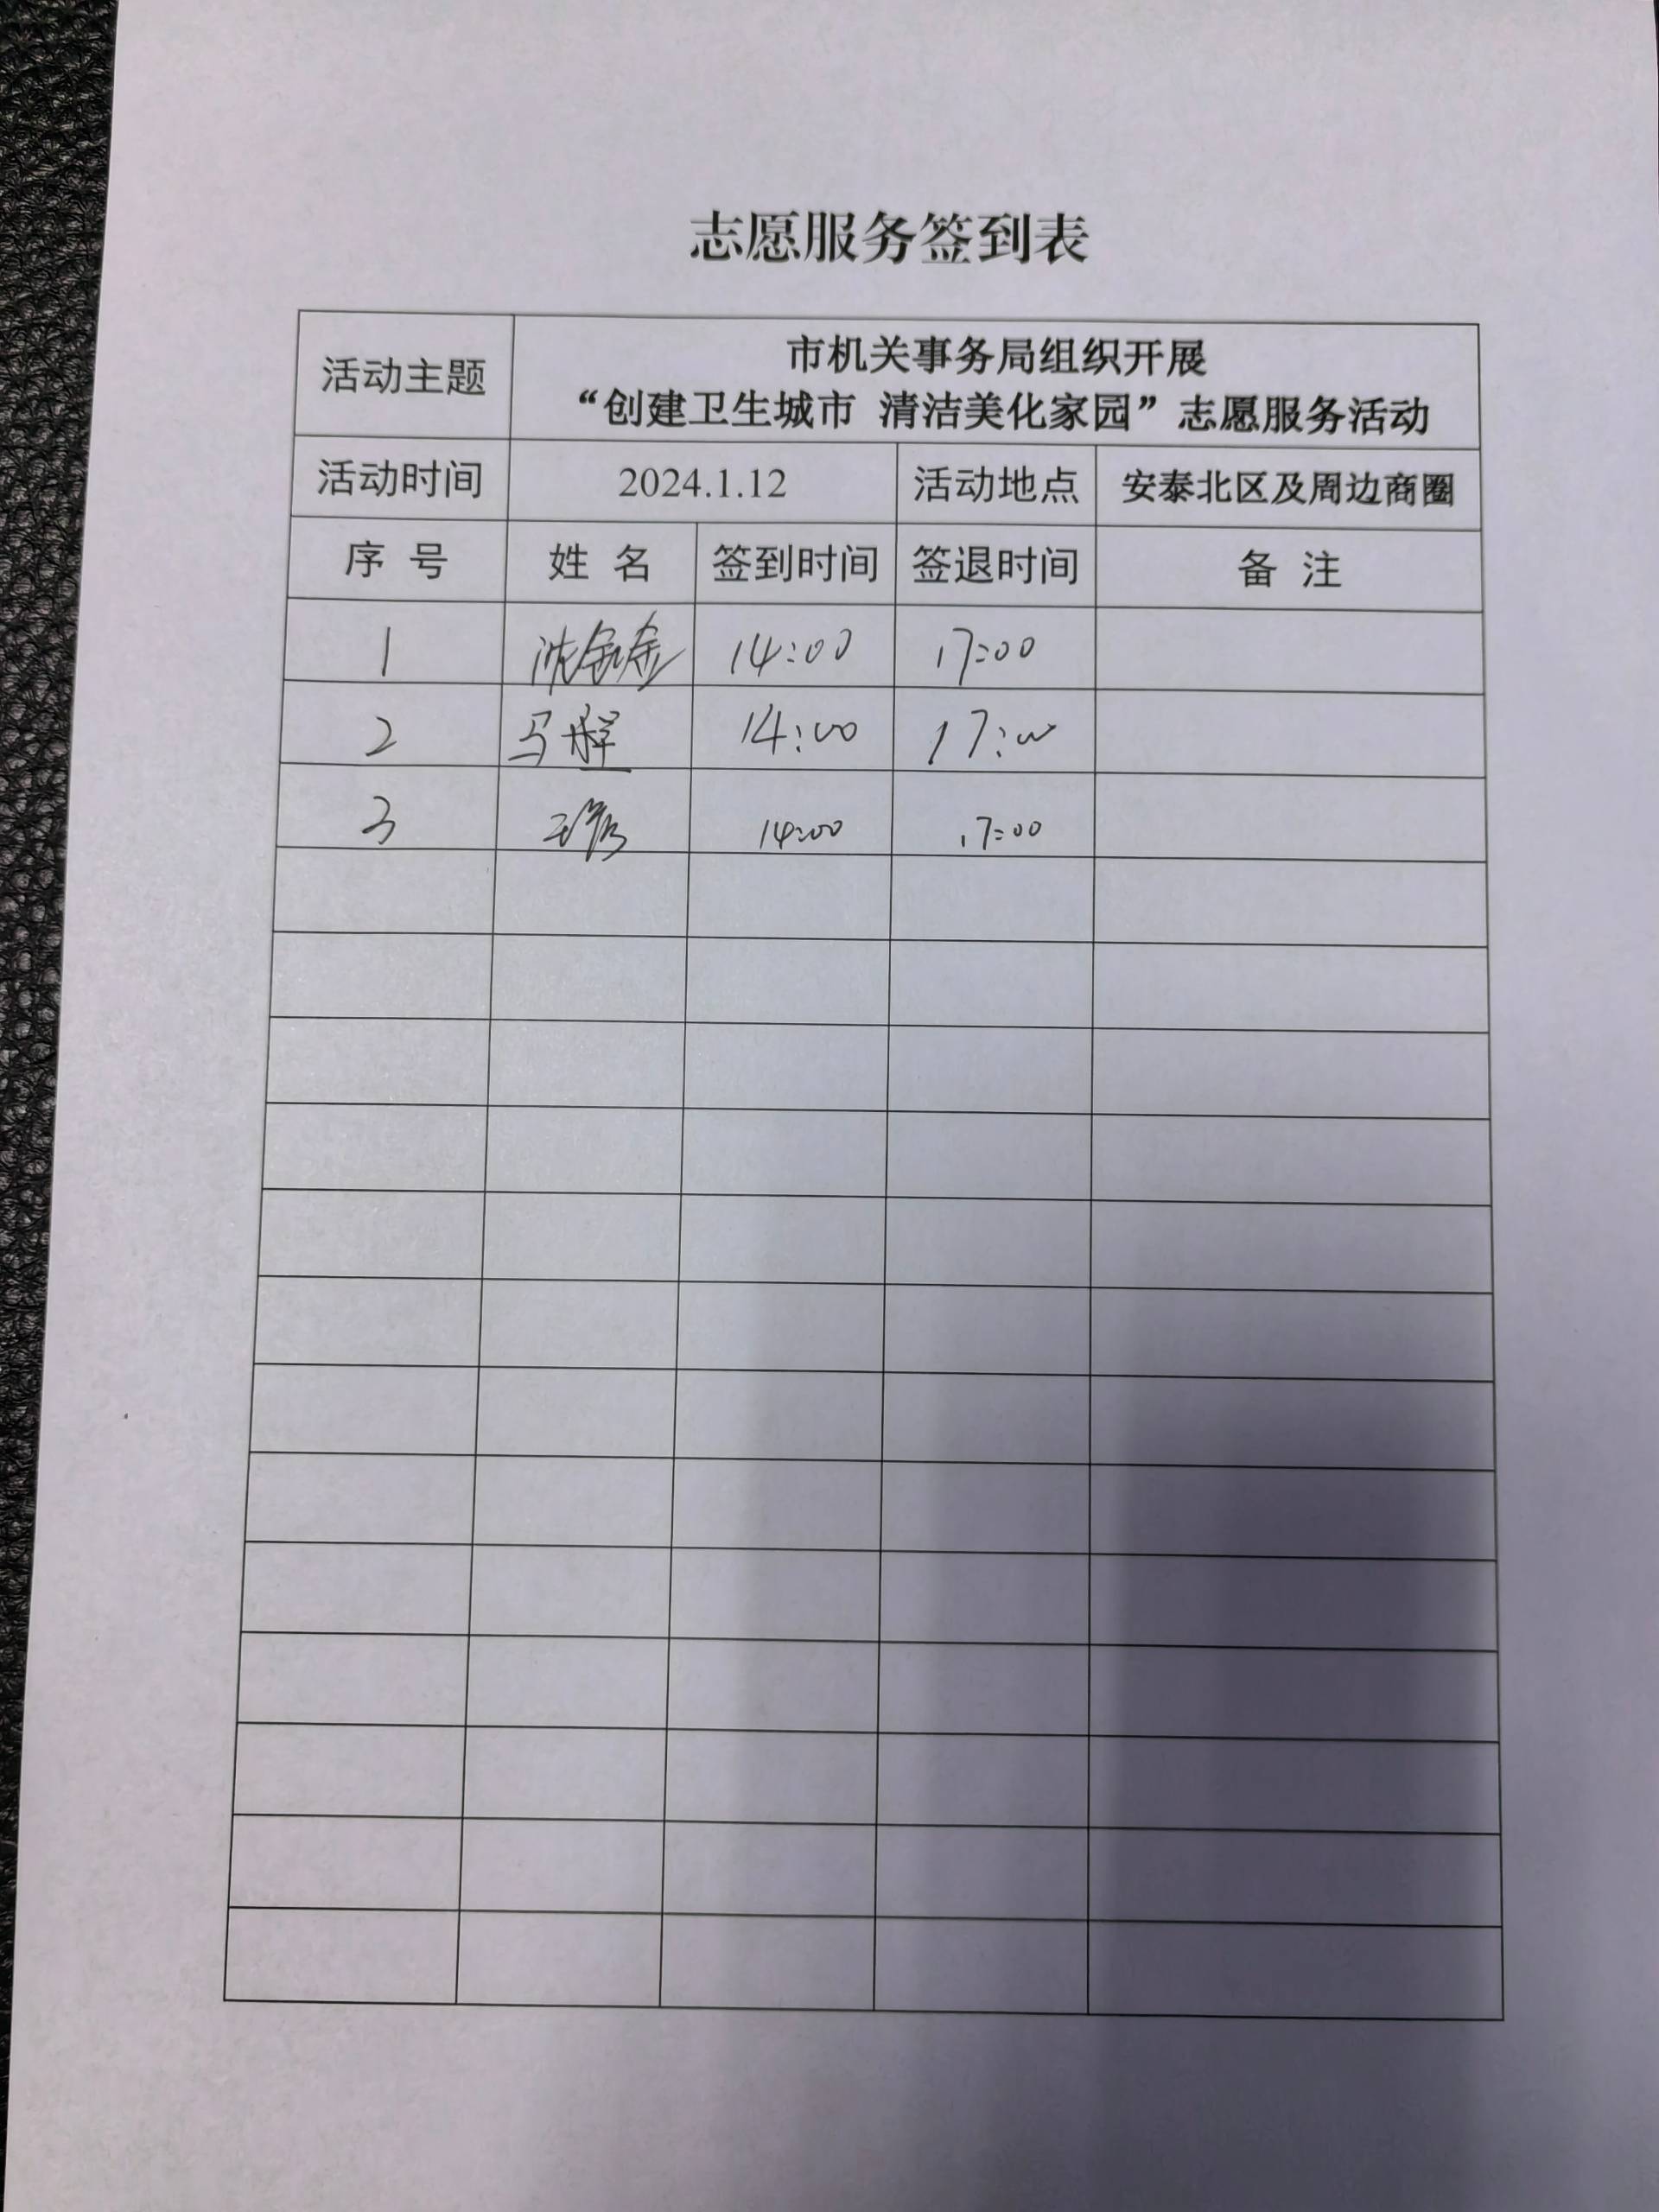 志愿服务签到表
活动主题
市机关事务局组织开展
“创建卫生城市 清洁美化家园”志愿服务活动
活动时间 2024.1.12 活动地点 安泰北区及周边商圈
序 号 姓 名 签到时间 签退时间 备 注
1 14:00 17:00
2 马 14:00 17:00
3 14:00 17:00